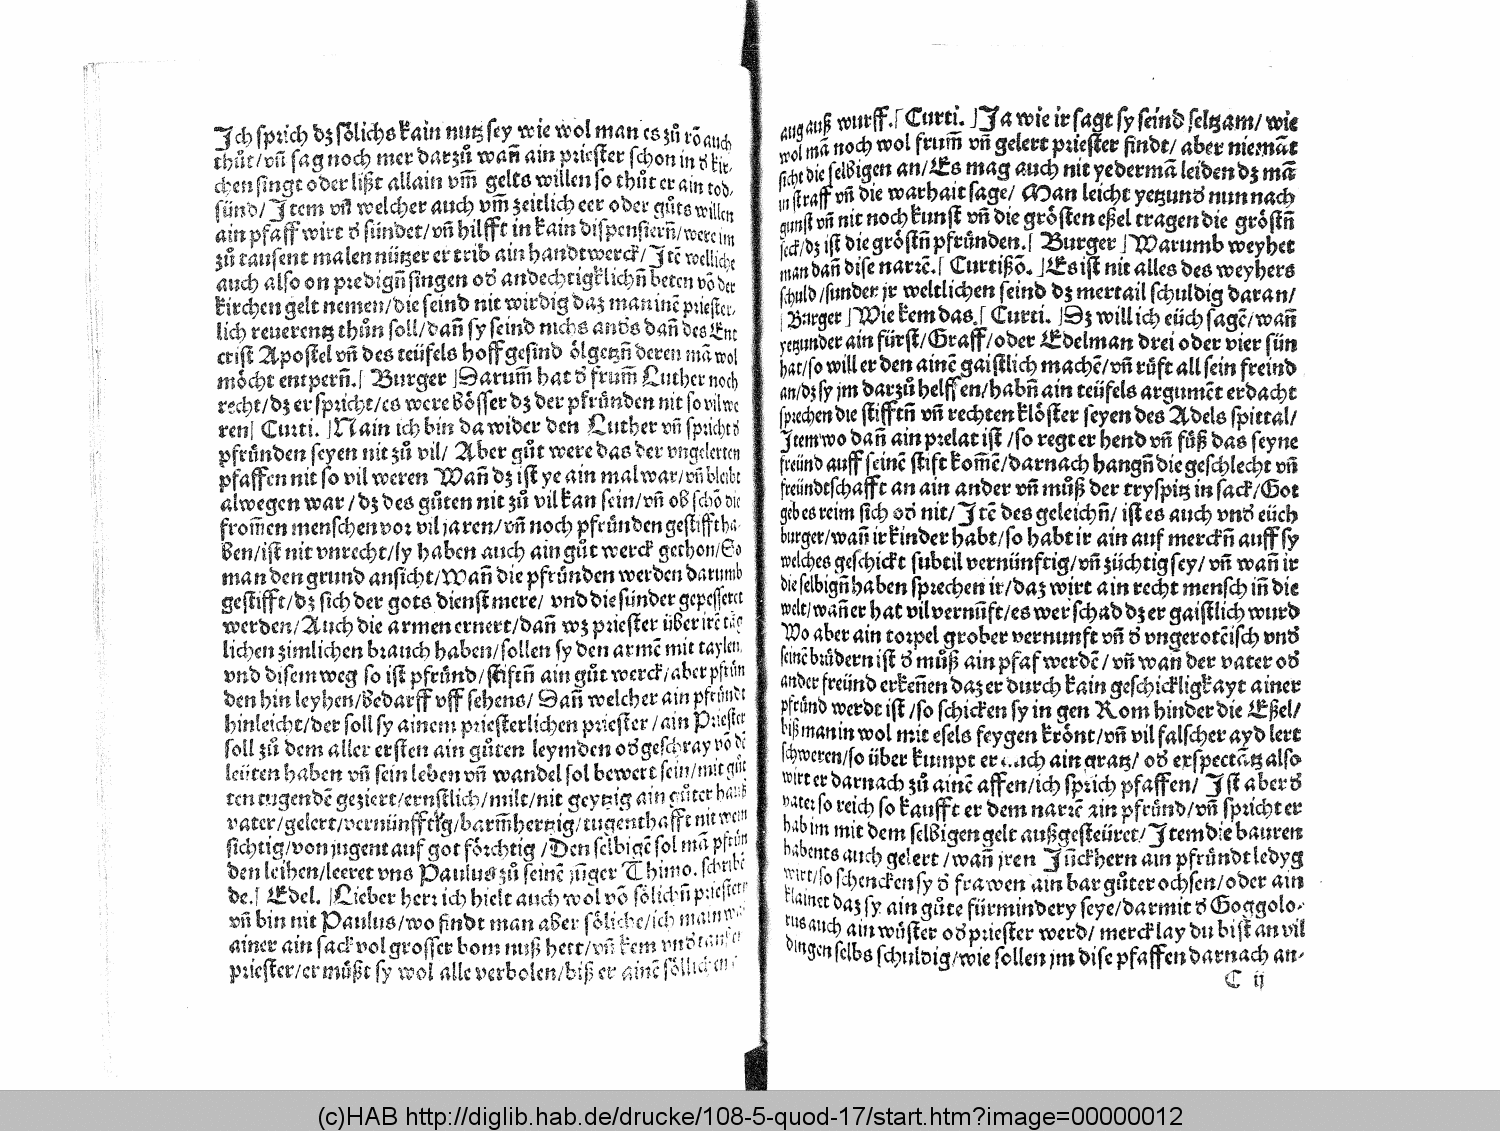 Ich sprich dz sölichs kain nutz sey wie wol man es zů rō auch
thůt/vn̄ sag noch mer darzů wan̄ ain priester schon in d̕ kir-
chen singt oder lißt allain vm̄ gelts willen so thůt er ain tod-
sünd/Item vn̄ welcher auch vm̄ zeitlich eer oder gůts willen
ain pfaff wirt d̕ sündet/vn̄ hilfft in kain dispensiern̄/were im
zů tausent malen nützer er trib ain handtwerck/Itē welliche
auch also on predign̄ singen od̕ andechtigklichn̄ beten vō der
kirchen gelt nemen/die seind nit wirdig daz man inē priester-
lich reuerentz thůn soll/dan̄ sy seind nichs and̕s dan̄ des Ent
crist Apostel vn̄ des teüfels hoffgesind ölgetzn̄ deren mā wol
möcht entpern̄.⌈ Burger ⌋Darum̄ hat d̕ frum̄ Luther noch
recht/dz er spricht/es were bösser dz der pfründen nit so vil we
ren⌈ Curti. ⌋Nain ich bin da wider den Luther vn̄ sprich d̕
pfründen seyen nit zů vil/ Aber gůt were das der vngelerten
pfaffen nit so vil weren Wan̄ dz ist ye ain mal war/vn̄ bleibt
alwegen war/dz des gůten nit zů vil kan sein/vn̄ ob schō die
from̄en menschen vor vil jaren/vn̄ noch pfründen gestifft ha
ben/ist nit vnrecht/sy haben auch ain gůt werck gethon/So
man den grund ansicht/Wan̄ die pfründen werden darumb
gestifft/dz sich der gots dienst mere/ vnd die sünder gepesseret
werden/Auch die armen ernert/dan̄ wz priester über irē täg
lichen zimlichen brauch haben/sollen sy den armē mit taylen
vnd disem weg so ist pfründ/stiftn̄ ain gůt werck/aber pfrün
den hin leyhen/bedarff vff sehens/ Dan̄ welcher ain pfründt
hinleicht/der soll sy ainem priesterlichen priester/ain Priester
soll zů dem aller ersten ain gůten leymden od̕ geschray vō dē
leüten haben vn̄ sein leben vn̄ wandel sol bewert sein/mit gůt
ten tugendē geziert/ernstlich/milt/nit geytzig ain gůter hauß
vater/gelert/vernünfftig/barm̄hertzig/tugenthafft nit wein
sichtig/von jugent auf got förchtig/Den selbigē sol mā pfrün
den leihen/leeret vns Paulus zů seinē jn̄ger Thimo. schribē
de.⌈ Edel. ⌋Lieber herr ich hielt auch wol vō sölichn̄ priester
vn̄ bin nit Paulus/wo findt man aber söliche/ich main wa
ainer ain sack vol grosser bom nuß hett/vn̄ kem vnd̕ tauset
priester/er můßt sy wol alle verbolen/biß er ainē söllichen
aug auß wurff.⌈ Curti. ⌋Ja wie ir sagt sy seind seltzam/ wie
wol mā noch wol frum̄ vn̄ gelert priester findt/ aber niemāt
sicht die selbigen an/Es mag auch nit yedermā leiden dz mā
in straff vn̄ die warhait sage/ Man leicht yetzund nun nach
gunst vn̄ nit noch kunst vn̄ die grösten eßel tragen die gröstn̄
seck/dz ist die gröstn̄ pfründen.⌈ Burger ⌋Warumb weyhet
man dan̄ dise narrē.⌈ Curtißō. ⌋Es ist nit alles des weyhers
schuld/sunder jr weltlichen seind dz mertail schuldig daran/
⌈Burger ⌋Wie kem das.⌈ Curti. ⌋Dz will ich eüch sagē/wan̄
yetzunder ain fürst/Graff/oder Edelman drei oder vier sün
hat/so will er den ainē gaistlich machē/vn̄ růft all sein freind
an/dz sy jm darzů helffen/habn̄ ain teüfels argumēt erdacht
sprechen die stifftn̄ vn̄ rechten klöster seyen des Adels spittal/
Item wo dan̄ ain prelat ist /so regt er hend vn̄ fůß das seyne
freünd auff seinē stift kom̄ē/darnach hangn̄ die geschlecht vn̄
freündtschafft an ain ander vn̄ můß der tryspitz in sack/Got
geb es reim sich od̕ nit/Itē des geleichn̄/ ist es auch vnd̕ eüch
burger/wan̄ ir kinder habt/so habt ir ain auf merckn̄ auff sy
welches geschickt subtil vernünftig/vn̄ züchtig sey/ vn̄ wan̄ ir
die selbign̄ haben sprechen ir/daz wirt ain recht mensch in̄ die
welt/wan̄ er hat vil vernüft/es wer schad dz er gaistlich wurd
Wo aber ain torpel grober vernunft vn̄ d̕ vngerotēisch vnd̕
seinē brüdern ist d̕ můß ain pfaf werdē/ vn̄ wan̄ der vater od̕
ander freünd erken̄en daz er durch kain geschickligkayt ainer
pfründ werdt ist/so schicken sy in gen Rom hinder die Eßel/
biß man in wol mit esels feygen krönt/vn̄ vil falscher ayd lert
schweren/so über kumpt er auch ain gratz/ od̕ expectātz also
wirt er darnach zů ainē affen/ich sprich pfaffen/ Ist aber d̕
vater so reich so kaufft er dem narrē ain pfründ/vn̄ spricht er
hab im mit dem selbigen gelt außgesteüret/Item die bauren
habents auch gelert/wan̄ jren Jun̄ckhern ain pfründt ledyg
wirt/so schencken sy d̕ frawen ain bar gůter ochsen/oder ain
klainet daz sy ain gůte fürmindery seye/darmit d̕ Goggolo-
rus auch ain wůster od̕ priester werd/ merck lay du bist an vil
dingen selbs schuldig/wie sollen jm dise pfaffen darnach an-
C ij
(c)HAB http://diglib.hab.de/drucke/108-5-quod-17/start.htm?image=00000012